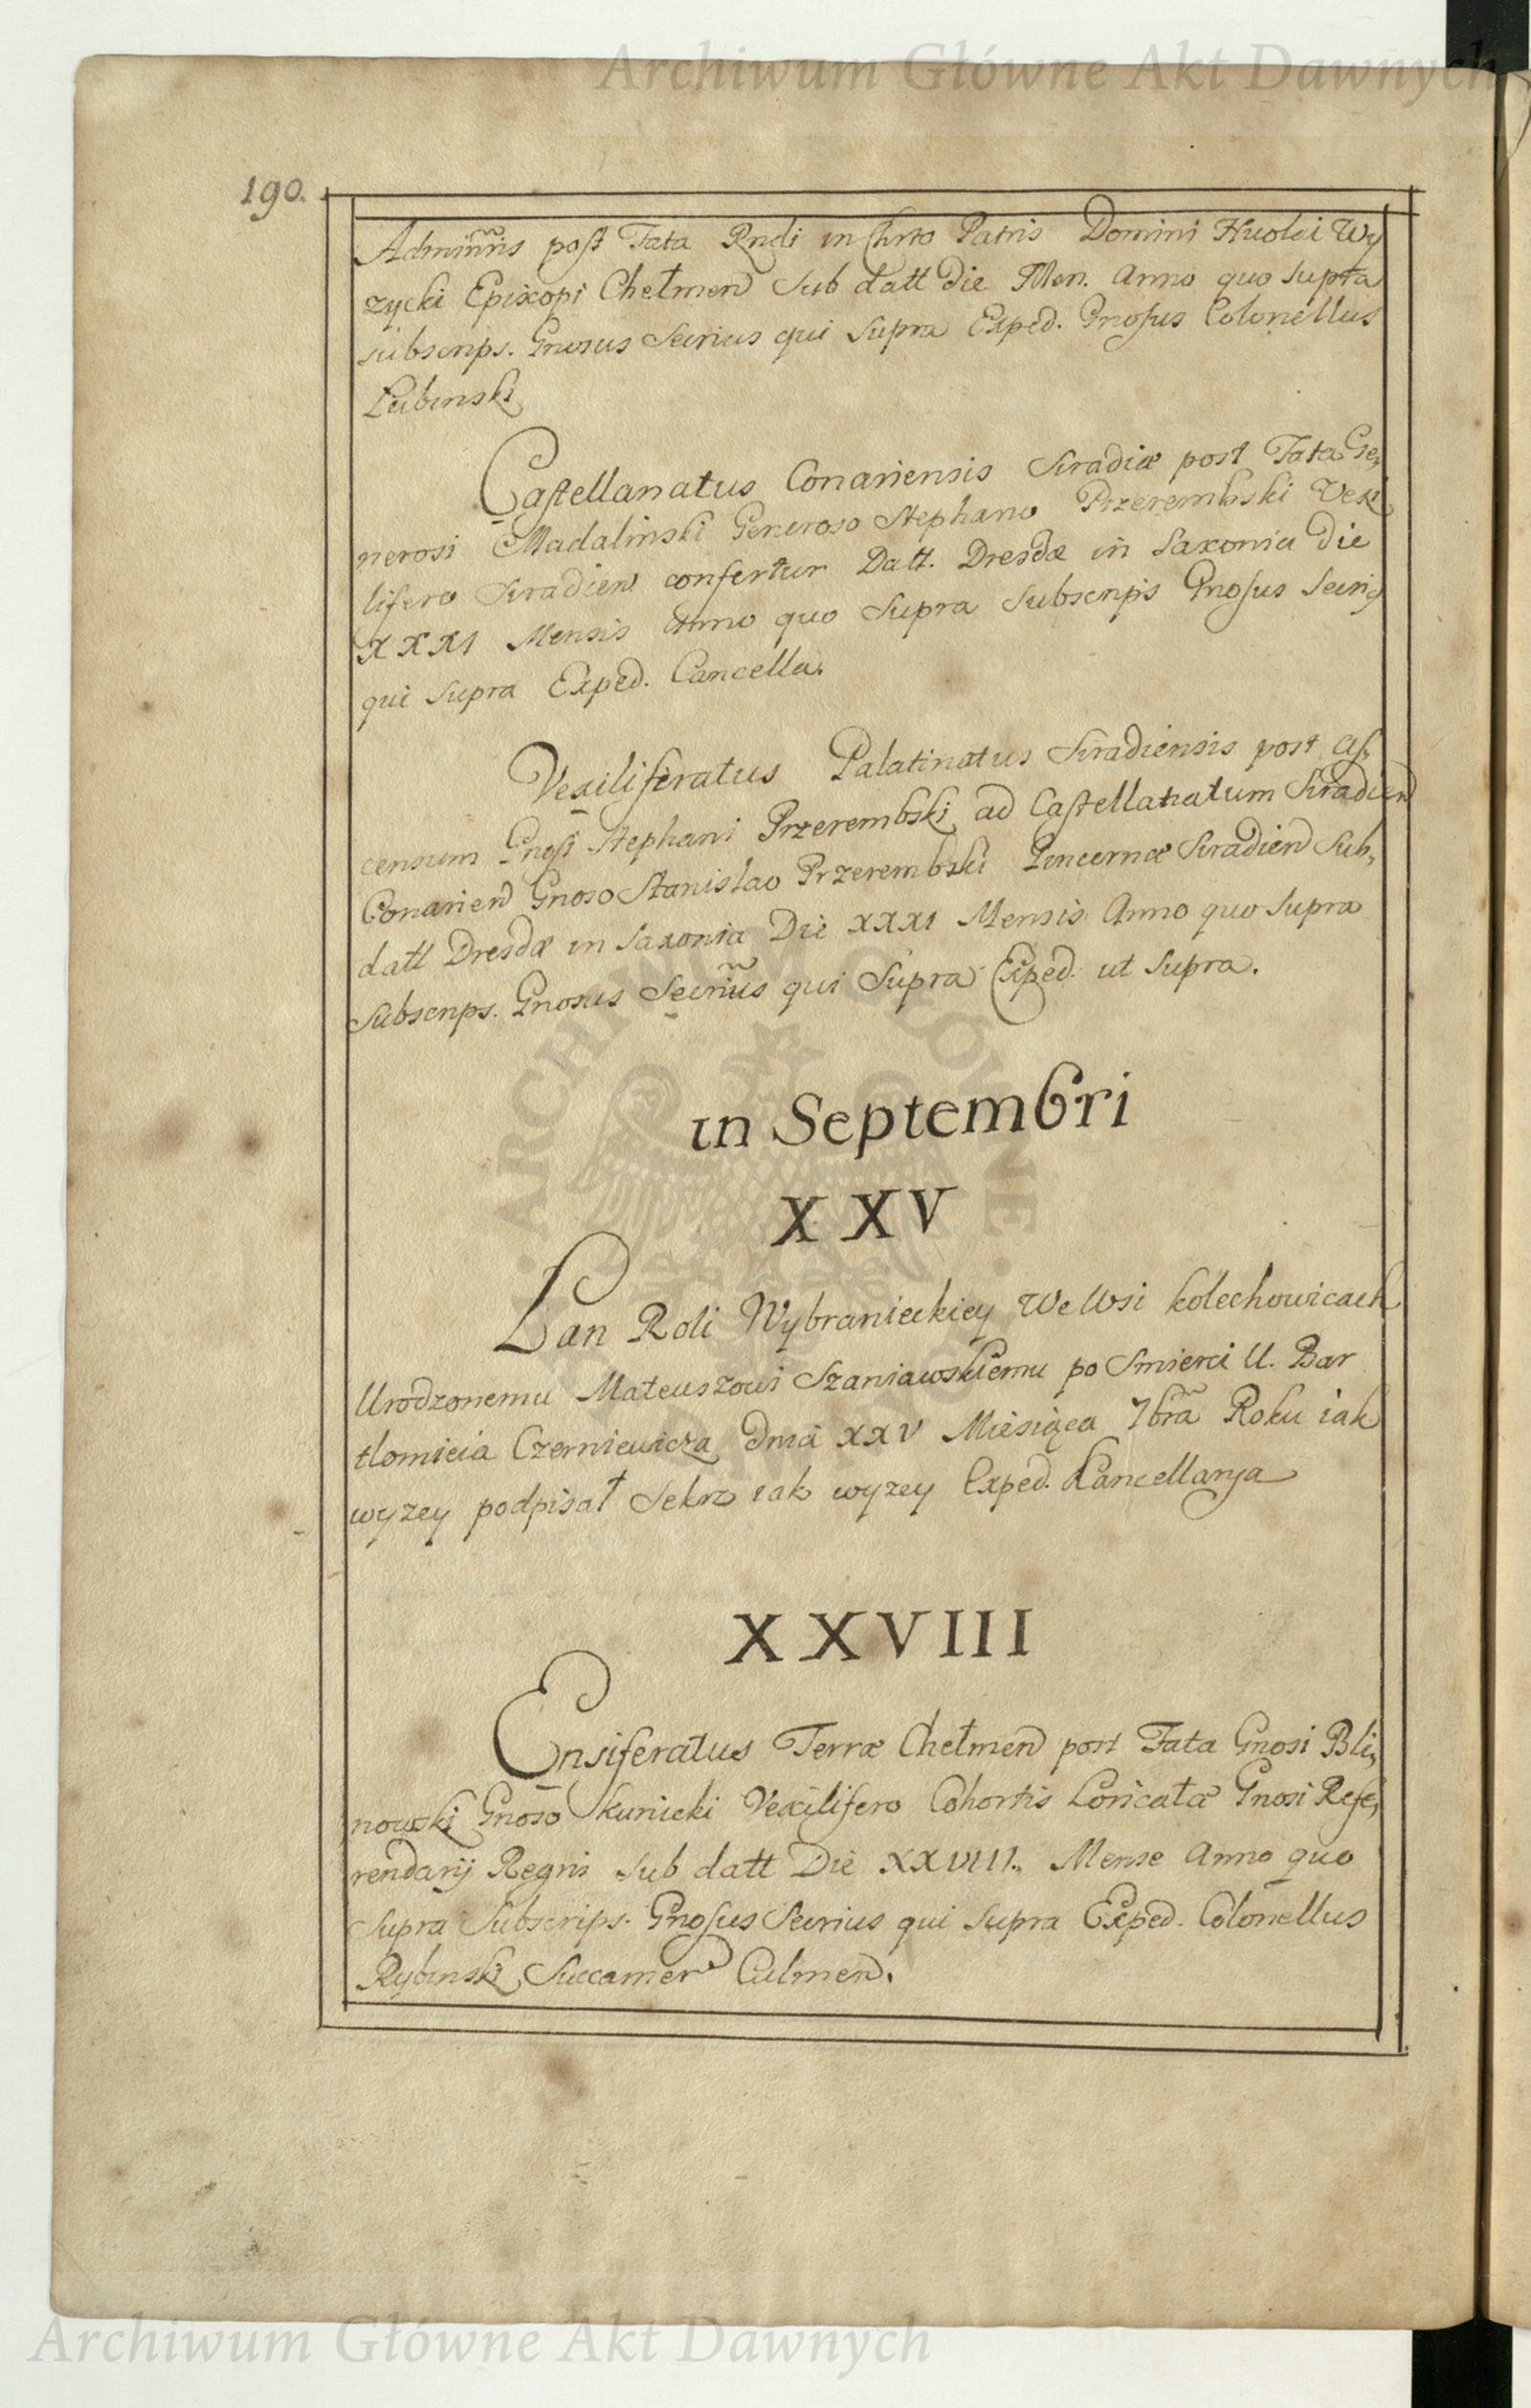 Archiwum Główne Akt Dawnych
190.
Adminris post Fata Rndi in Chrto Patris Domini Wy
zycki Episcopi Chełmen Sub datt die Men. Anno quo supra
subscrips. Gnosus Secrius qui Supra Exped. Gnosus Colonellus
Łubinski
Castellanatus Conariensis Siradiæ post Fata Ge,
nerosi Madalinski Generoso Stephano Przerembski Vexi
lifero Siradien confertur Datt. Dresdæ in Saxonia Die
XXXI Mensis Anno quo Supra Subscrips Gnosus Secrius
qui Supra Exped. Cancella.
Vexiliferatus Palatinatus Siradiensis post As,
censum Gnosi Stephani Przerembski ad Castellanatum Siradien
Conarien Gnoso Stanislao Przerembski Pincernæ Siradien Sub,
datt Dresdæ in Saxonia Die XXXI Mensis Anno quo Supra
Subscrips. Gnosus Secrius qui Supra Exped. ut Supra.
in Septembri
XXV
Łan Roli Wybranieckiey We Wsi Kolechowicach
Urodzonemu Mateuszowi Szaniawskiemu po Smierci U. Bar
tlomieia Czerniewicza Dnia XXV Miesiąca 7bra Roku iak
wyzey podpisał Sekrz iak wyzey Exped. Kancellarya
XXVIII
Ensiferatus Terræ Chełmen post Fata Gnosi Bli,
nowski Gnoso Kunicki Vexilifero Cohortis Loricatæ Gnosi Refe,
rendarij Regni Sub datt Die XXVIII. Mense Anno quo
Supra Subscrips. Gnosus Secrius qui Supra Exped. Colonellus
Rybinski Succamer Culmen.
Archiwum Główne Akt Dawnych